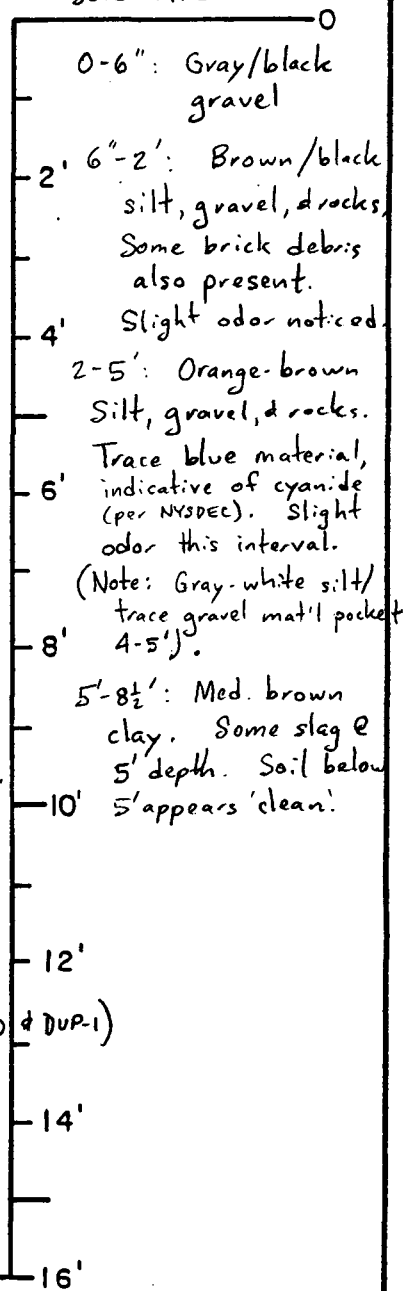 0
0-6": Gray/black
gravel
2' 6"-2': Brown/black
silt, gravel, & rocks,
Some brick debris
also present.
4' Slight odor noticed.
2-5': Orange-brown
Silt, gravel, & rocks.
Trace blue material,
6' indicative of cyanide
(per NYSDEC). Slight
odor this interval.
(Note: Gray-white silt/
trace gravel mat'l pocket
8' 4-5').
5'-8½': Med. brown
clay. Some slag @
5' depth. Soil below
10' 5' appears 'clean'.
12'
& DUP-1)
14'
16'